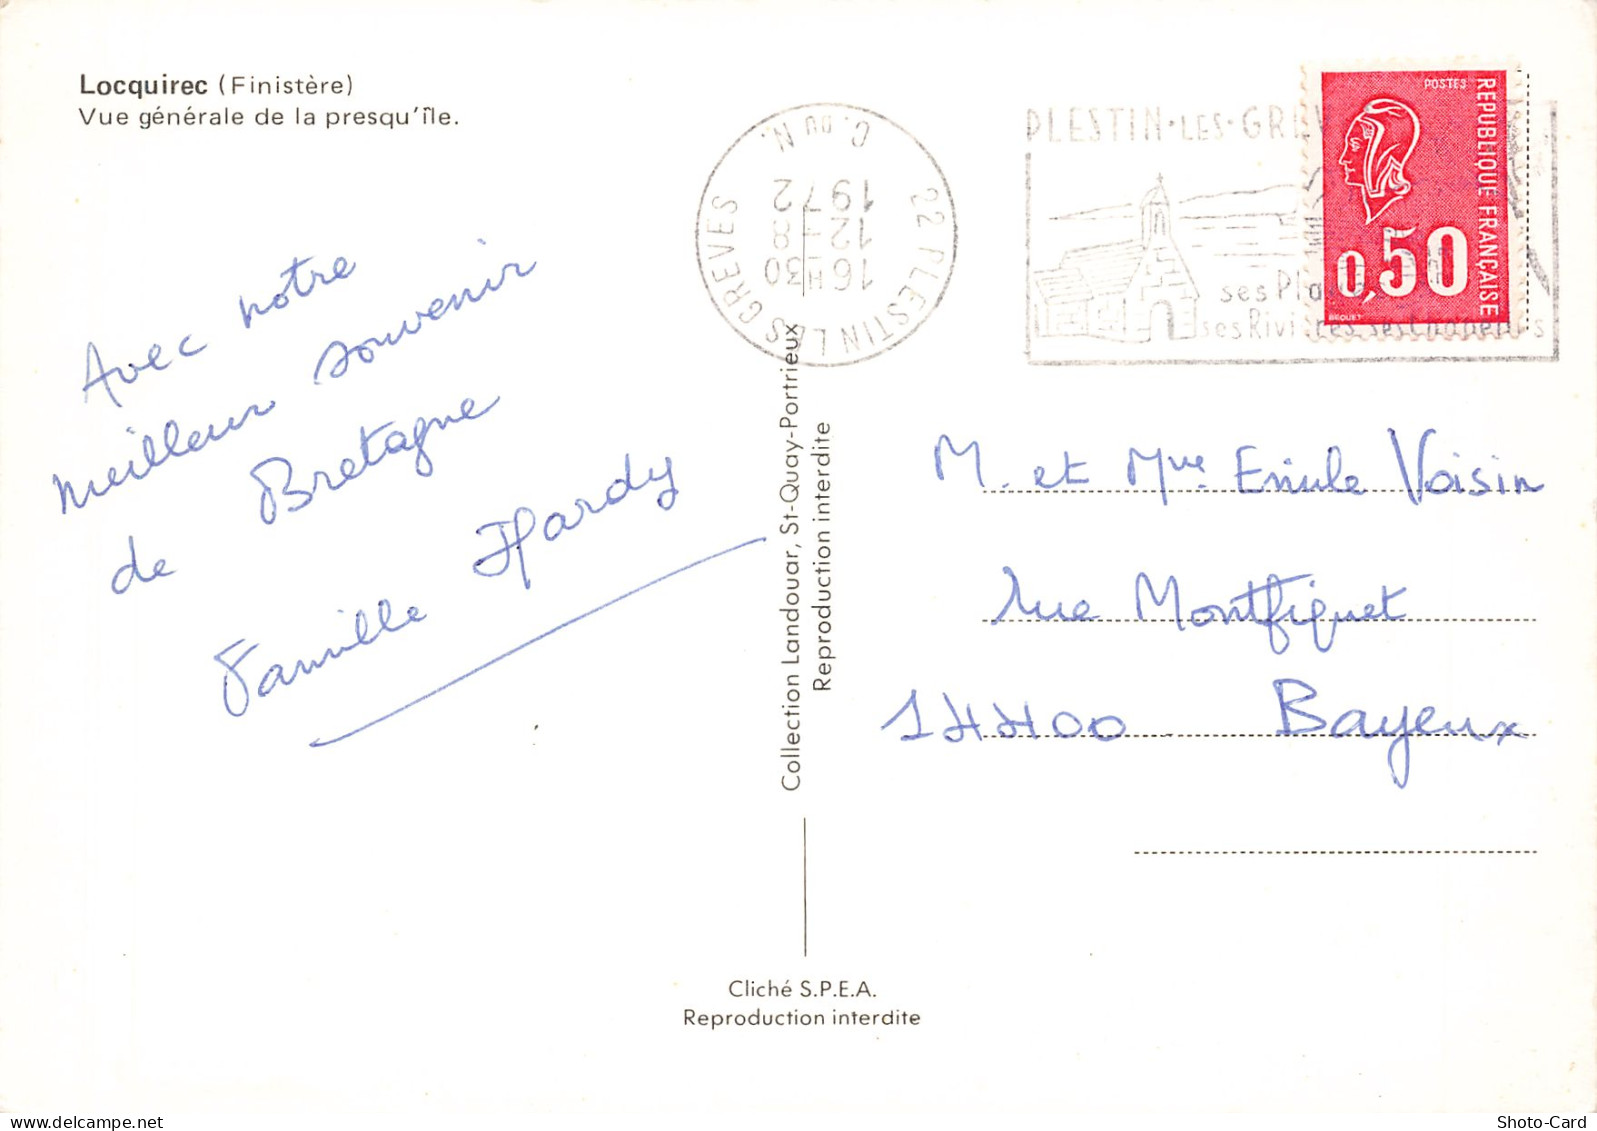 Locquirec (Finistère)
Vue générale de la presqu'île.
Avec notre
meilleur souvenir
de Bretagne
Famille Hardy
22 PLESTIN LES GREVES
C. DU N.
16 H 30
12 - 8
1972
PLESTIN·LES·GREV
ses Pla
ses Rivières, ses Chapelles
POSTES
REPUBLIQUE FRANÇAISE
0,50
BEQUET
M. et Mme Emile Voisin
rue Montfiquet
14400 Bayeux
Collection Landouar, St-Quay-Portrieux
Reproduction interdite
Cliché S.P.E.A.
Reproduction interdite
Shoto-Card